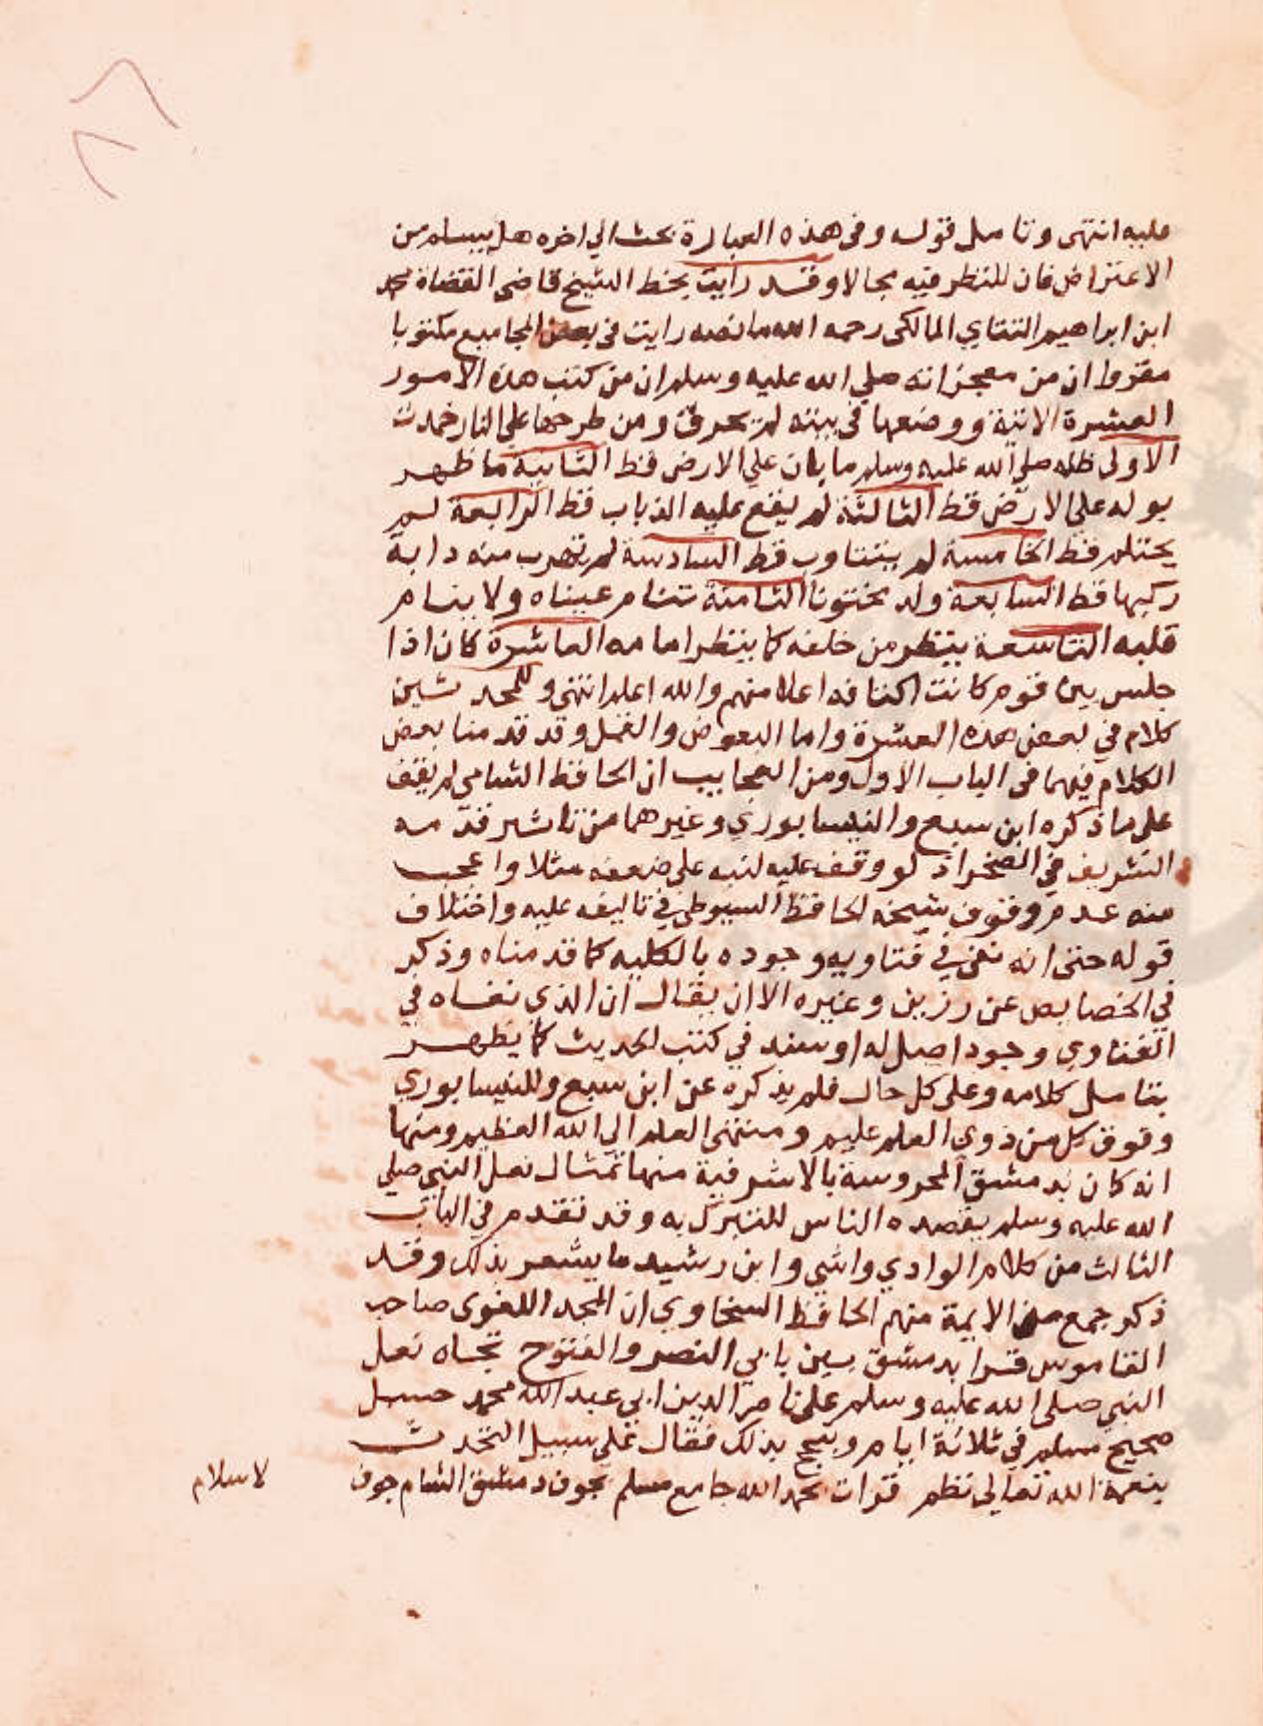 عليه انتهى وتامل قوله وفي هذه العبارة بحث الي اخره هل يسلم من
الاعتراض فان للنظر فيه مجالا وقد رايت بخط الشيخ قاضي القضاة محمد
ابن ابراهيم التتاي المالكي رحمه الله ما نصه رايت في بعض المجاميع مكتوبا
مقروا ان من معجزاته صلي الله عليه وسلم ان من كتب هذه الامور
العشرة الاتية ووضعها في بيته لم يحرق ومن طرحها علي النار خمدت
الاولى ظله صلي الله عليه وسلم ما بان علي الارض قط الثانية ما ظهر
بوله على الارض قط الثالثة لم يقع عليه الذباب قط الرابعة لم
يحتلم قط الخامسة لم يتثاوب قط السادسة لم تهرب منه دابة
ركبها قط السابعة ولد مختونا الثامنة تنام عيناه ولا ينام
قلبه التاسعة ينظر من خلفه كما ينظر امامه العاشرة كان اذا
جلس بين قوم كانت اكتافه اعلا منهم والله اعلم انتهى وللمحدثين
كلام في بعض هذه العشرة واما البعوض والقمل وقد قدمنا بعض
الكلام فيهما في الباب الاول ومن العجايب ان الحافظ الشامي لم يقف
على ما ذكره ابن سبع والنيسابوري وغيرهما من تاثير قدمه
الشريف في الصخر اذ لو وقف عليه لنبه على ضعفه مثلا واعجب
منه عدم وقوف شيخه الحافظ السيوطي في تاليفه عليه واختلاف
قوله حتى انه نفى في فتاويه وجوده بالكليه كما قدمناه وذكر
في الخصايص عن رزين وغيره الا ان يقال ان الذي نفاه في
الفتاوي وجود اصل له او سند في كتب الحديث كما يظهر
بتامل كلامه وعلى كل حال فلم يذكره عن ابن سبع وللنيسابوري
وفوق كل من ذوي العلم عليم ومنتهى العلم الي الله العظيم ومنها
انه كان بدمشق المحروسة بالاشرفية منها تمثال نعل النبي صلي
الله عليه وسلم يقصده الناس للتبرك به وقد تقدم في الباب
الثالث من كلام الوادي واشي وابن رشيد ما يشعر بذلك وقد
ذكر جمع من الايمة منهم الحافظ السخاوي ان المجد اللغوى صاحب
القاموس قرا بدمشق بين بابي النصر والفتوح تجاه نعل
النبي صلى الله عليه وسلم على ناصر الدين ابي عبد الله محمد جهبل
صحيح مسلم في ثلاثة ايام وتبجح بذلك فقال علي سبيل التحدث
بنعمة الله تعالى نظم قرات بحمد الله جامع مسلم بجوف دمشق الشام جوف
لاسلام